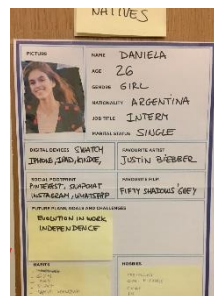 NATIVES
PICTURE
NAME DANIELA
AGE 26
GENDER GIRL
NATIONALITY ARGENTINA
JOB TITLE INTERN
MARITAL STATUS SINGLE
DIGITAL DEVICES SWATCH
IPHONE, IPAD, KINDLE,
FAVOURITE ARTIST
JUSTIN BIEBBER
SOCIAL FOOTPRINT
PINTEREST, SNAPCHAT
INSTAGRAM, WHATSAPP
FAVOURITE FILM
FIFTY SHADOWS GREY
FUTURE PLANS, GOALS AND CHALLENGES
EVOLUTION IN WORK
INDEPENDENCE
HABITS
HOBBIES